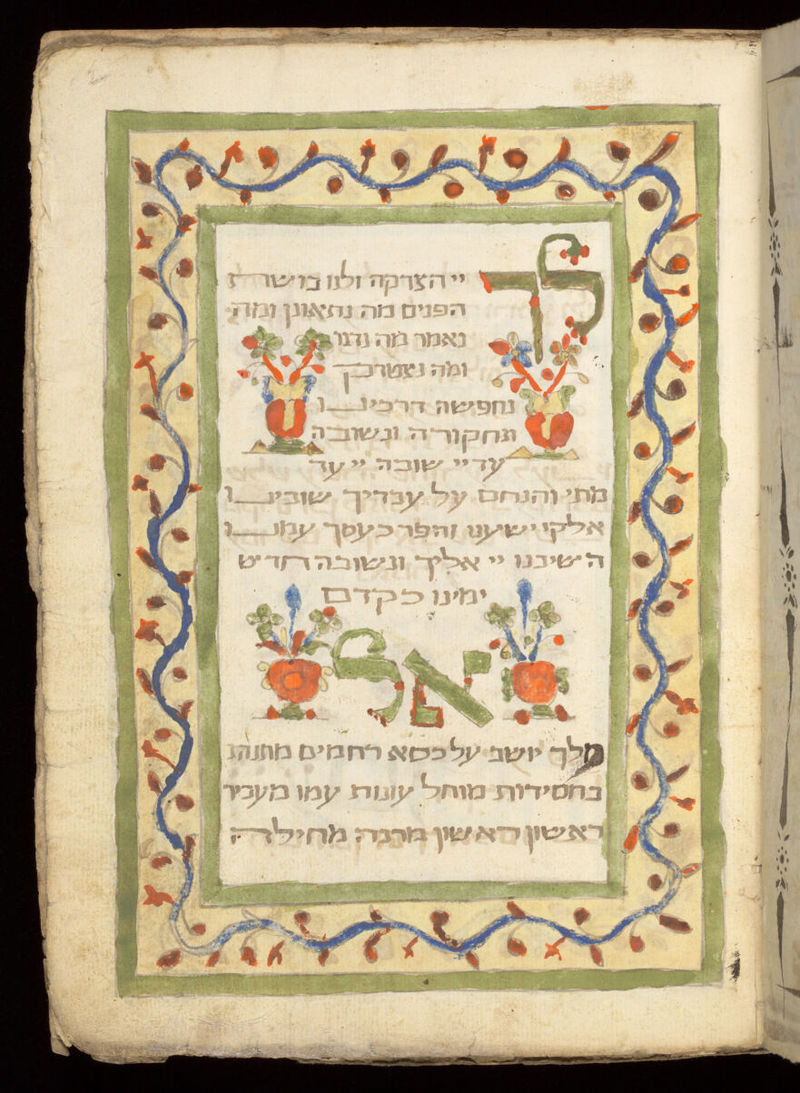 לך
יי הצדקה ולנו בושת
הפנים מה נתאונן ומה
נאמר מה נדבר
ומה נצטדק
נחפשה דרכינו
ונחקורה ונשובה
עדיי שובה יי עד
מתי והנחם על עבדיך שובינו
אלקי ישעינו והפר כעסך עמנו
השיבנו יי אליך ונשובה חדש
ימינו כקדם
אל
מלך יושב על כסא רחמים מתנהג
בחסידות מוחל עונות עמו מעביר
ראשון ראשון מרבה מחילה